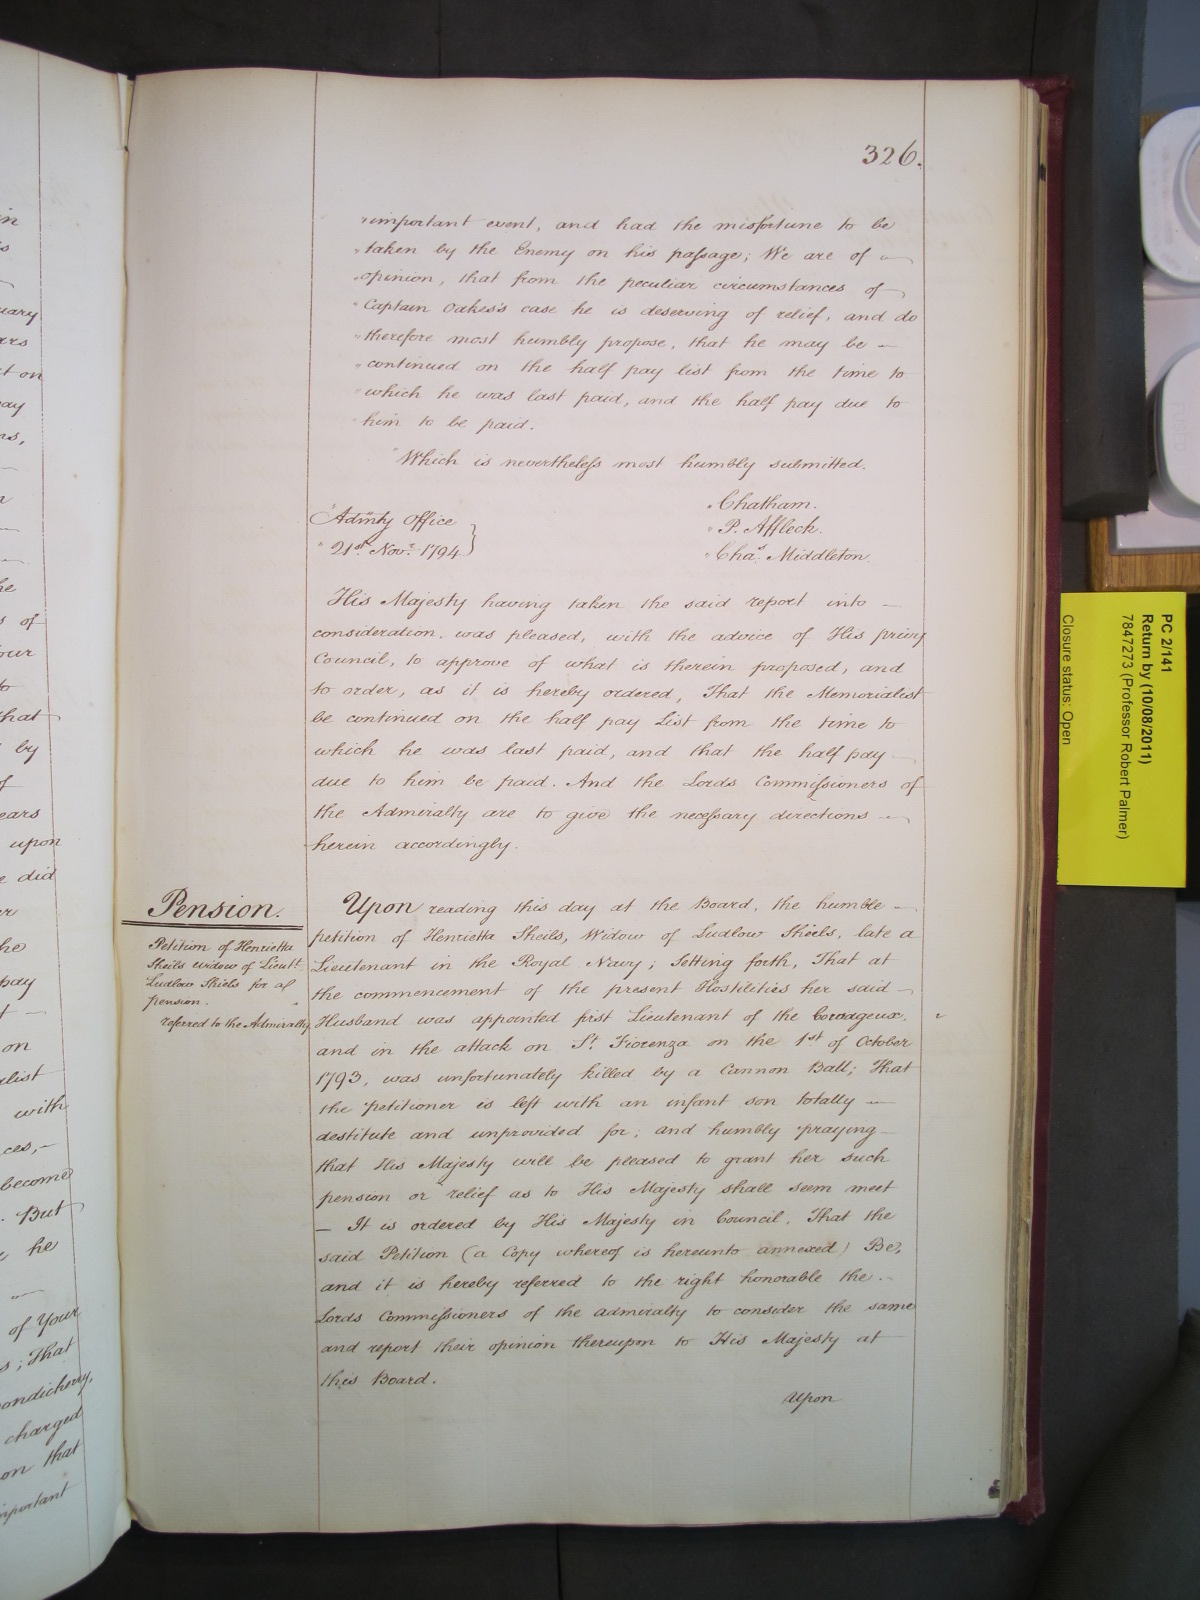 326.
"important event, and had the misfortune to be
"taken by the Enemy on his passage; We are of
"opinion, that from the peculiar circumstances of
"Captain Oakes's case he is deserving of relief, and do
"therefore most humbly propose, that he may be —
"continued on the half pay list from the time to
"which he was last paid, and the half pay due to
"him to be paid.
"Which is nevertheless most humbly submitted.
"Admty Office
"21st Novr. 1794
"Chatham.
"P. Affleck.
"Chas. Middleton.
His Majesty having taken the said report into —
consideration, was pleased, with the advice of His privy
Council, to approve of what is therein proposed, and
to order, as it is hereby ordered, That the Memorialist
be continued on the half pay List from the time to
which he was last paid, and that the half pay
due to him be paid. And the Lords Commissioners of
the Admiralty are to give the necessary directions —
herein accordingly.
Pension.
Petition of Henrietta
Sheils widow of Lieutt.
Ludlow Shiels for a
pension.
referred to the Admiralty
Upon reading this day at the Board, the humble —
petition of Henrietta Sheils, Widow of Ludlow Shiels, late a
Lieutenant in the Royal Navy; Setting forth, That at
the commencement of the present Hostilities her said —
Husband was appointed first Lieutenant of the Courageux,
and in the attack on St. Fiorenza on the 1st of October
1793, was unfortunately killed by a Cannon Ball; That
the petitioner is left with an infant son totally —
destitute and unprovided for; and humbly praying —
that His Majesty will be pleased to grant her such
pension or relief as to His Majesty shall seem meet
— It is ordered by His Majesty in Council, That the
said Petition (a Copy whereof is hereunto annexed) Be,
and it is hereby referred to the right honorable the
Lords Commissioners of the Admiralty to consider the same
and report their opinion thereupon to His Majesty at
this Board.
Upon
PC 2/141
Return by (10/08/2011)
7847273 (Professor Robert Palmer)
Closure status: Open
in
uary
on
pay
he
of
to
that
by
of
ears
upon
did
he
pay
on
alist
with
become
But
he
of Your
; That
ondicherry,
charged
on that
mportant